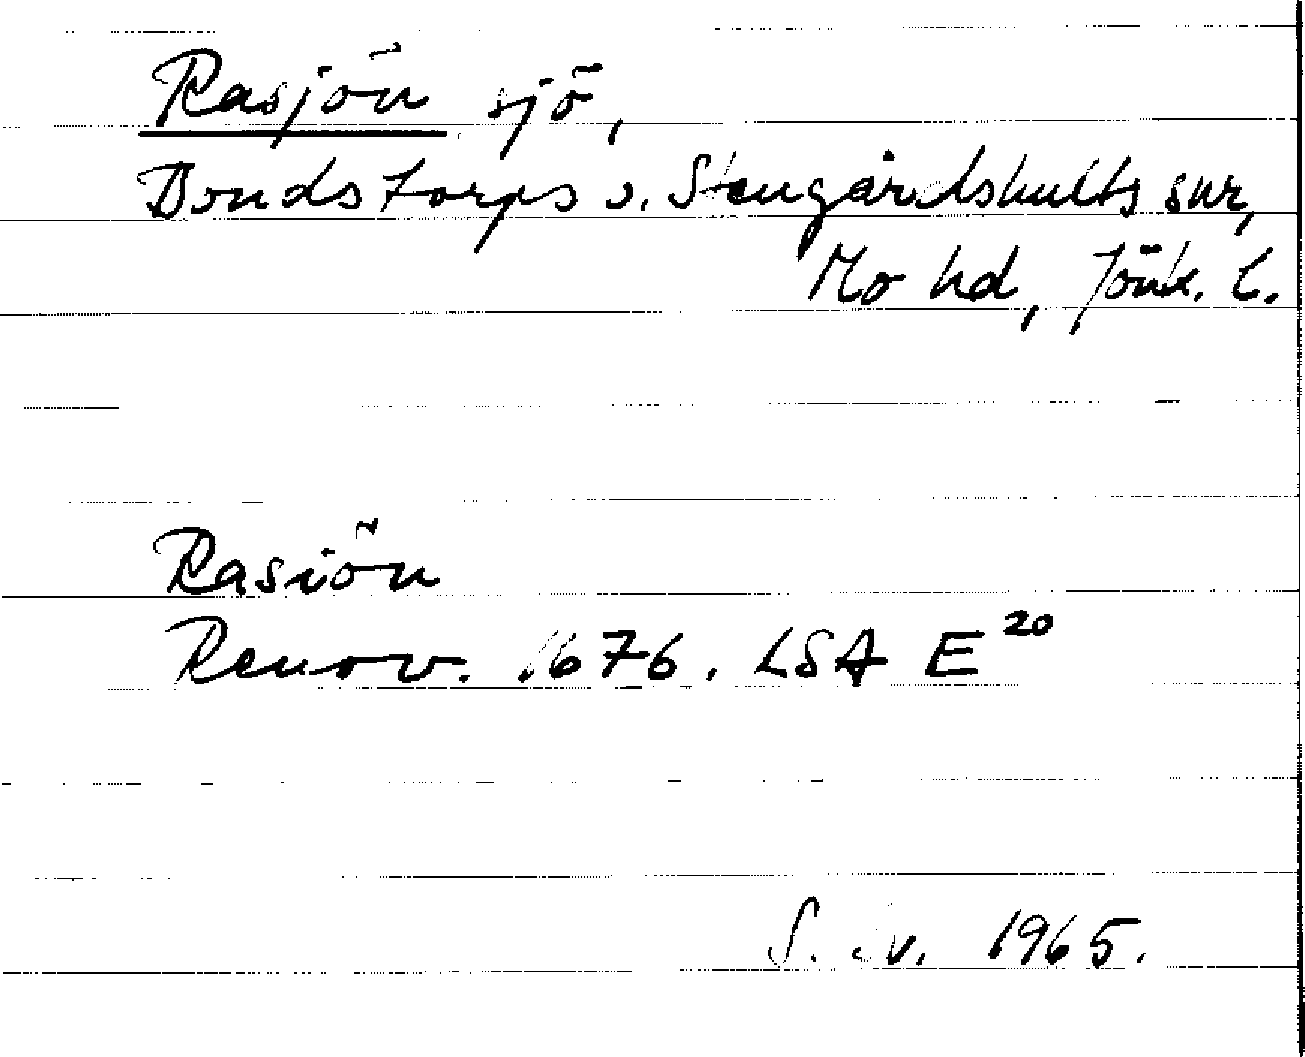 Rasjön sjö,
Bondstorps o. Stengårdshults snr,
Mo hd, Jönk. l.
Rasiön
Renov. 1676. LSA E 20
S. Sv. 1965.